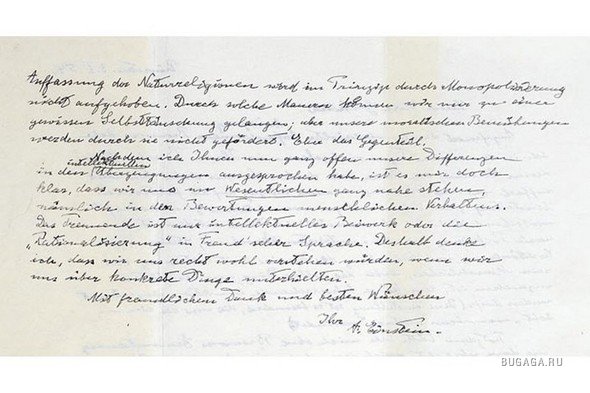 Auffassung der Naturreligionen wird im Prinzip durch Monopolisierung
nicht aufgehoben. Durch solche Mauern können wir nur zu einer
gewissen Selbsttäuschung gelangen; aber unsere moralischen Bemühungen
werden durch sie nicht gefördert. Eher das Gegenteil.
Nachdem ich Ihnen nun ganz offen unsere Differenzen
intellektuellen
in den Überzeugungen ausgesprochen habe, ist es mir doch
klar, dass wir uns im Wesentlichen ganz nahe stehen,
nämlich in den Bewertungen menschlichen Verhaltens.
Das Trennende ist nur intellektuelles Beiwerk oder die
„Rationalisierung" in Freud'scher Sprache. Deshalb denke
ich, dass wir uns recht wohl verstehen würden, wenn wir
uns über konkrete Dinge unterhielten.
Mit freundlichem Dank und besten Wünschen
Ihr
A. Einstein.
BUGAGA.RU